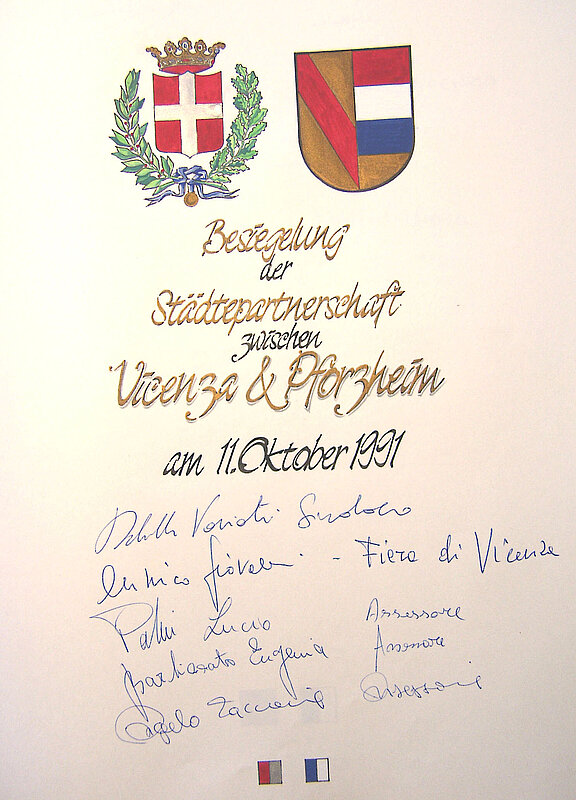 Besiegelung
der
Städtepartnerschaft
zwischen
Vicenza & Pforzheim
am 11. Oktober 1991
Variati Sindaco
Enrico - Fiera di Vicenza
Lucio Assessore
Barbarato Eugenia Assessore
Angelo Zaccaria Assessore